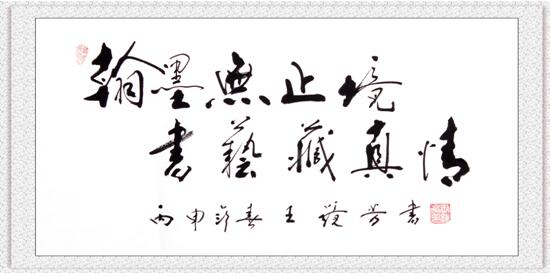 翰墨無止境
書藝藏真情
丙申新春王 芳書